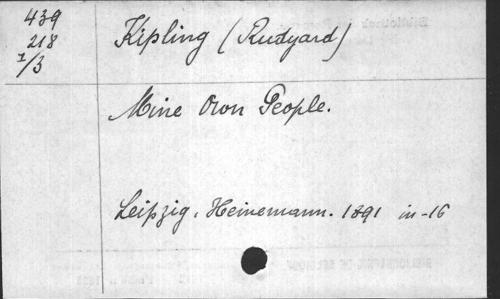 439
218
1/3
Kipling (Rudyard)
Mine Own People.
Leipzig. Heinemann. 1891 in-16